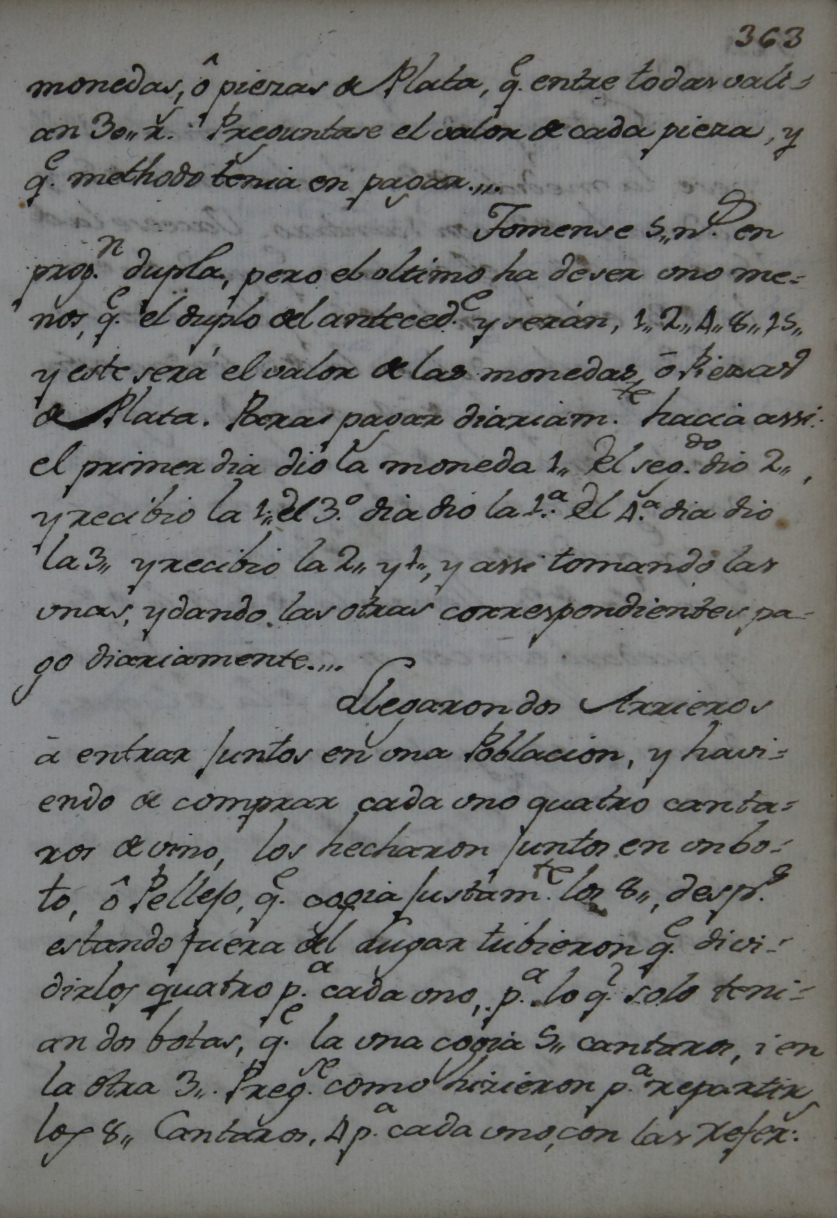 363
monedas, ô piezas de Plata, q.e entre todas vali-
an 30,, r.s Preguntase el valor de cada pieza, y
q.e methodo tenia en pagar....
Tomense 5,, n.os en
prop.n dupla, pero el vltimo ha de ser vno me-
nos, q.e el duplo del anteced.e y serán, 1,, 2,, 4,, 8,, 15,,
y este será el valor de las monedas, ô Piezas
de Plata. Para pagar diariam.te hacia assi:
el primer dia dio la moneda 1,, El seg.do dio 2,,,
y recibio la 1,, el 3.o dia dio la 1.a El 4.a dia dio
la 3,, y recibio la 2,, y 1,,, y assi tomando las
vnas, y dando las otras correspondientes pa-
go diariamente....
Llegaron dos Arrieros
â entrar Juntos en vna Poblacion, y havi-
endo de comprar cada vno quatro canta-
ros de vino, los hecharon Juntos en vn bo-
to, ô Pellejo, q.e cogia Justam.te los 8,,, desp.s
estando fuera del Lugar tubieron q.e divi-
dirlos quatro p.a cada vno, p.a lo q.e solo teni-
an dos botas, q.e la vna cogia 5,, cantaros, i en
la otra 3,,. Preg.se como hizieron p.a repartir
los 8,, Cantaros, 4 p.a cada vno, con las refer: